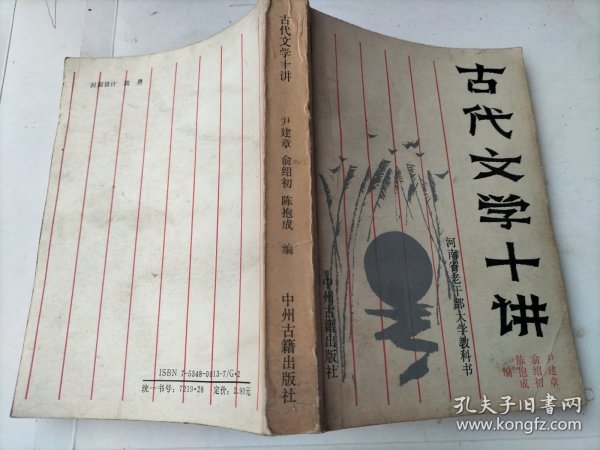 古代文学十讲
河南省老干部大学教科书
尹建章
俞绍初
陈抱成
编
中州古籍出版社
古代文学十讲
尹建章 俞绍初 陈抱成 编
中州古籍出版社
封面设计
ISBN 7-5348-0013-7/G·2
统一书号：7219·28 定价：2.90元
孔夫子旧书网
www.kongfz.com